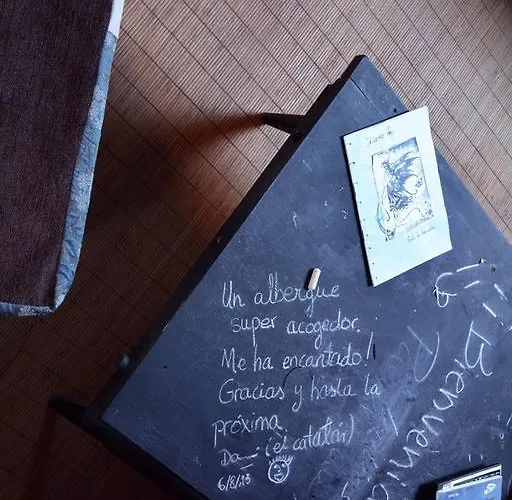 Un albergue
super acogedor.
Me ha encantado!
Gracias y hasta la
próxima.
(el catalán)
6/8/13
¡Bienvenid